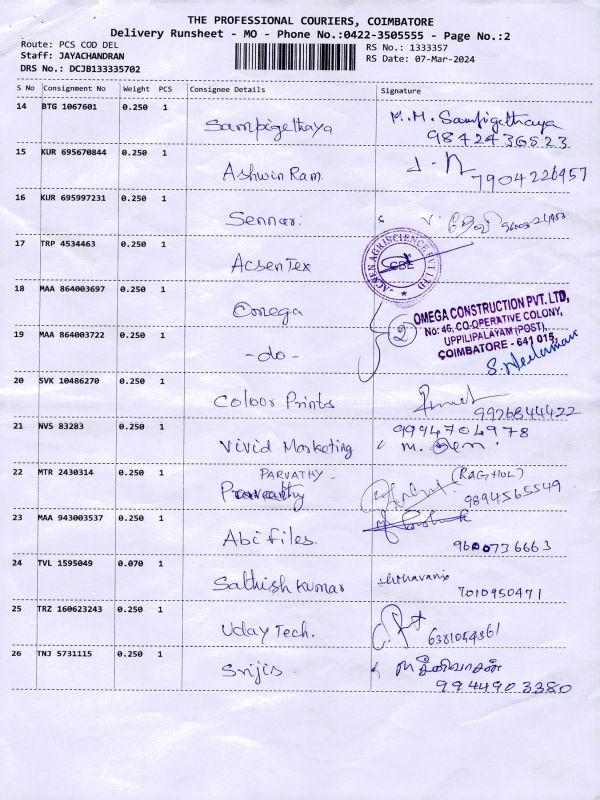 THE PROFESSIONAL COURIERS, COIMBATORE
Delivery Runsheet - MO - Phone No.:0422-3505555 - Page No.:2
Route: PCS COD DEL
Staff: JAYACHANDRAN
DRS No.: DCJB133335702
RS No.: 1333357
RS Date: 07-Mar-2024
S No Consignment No Weight PCS Consignee Details Signature
14 BTG 1067601 0.250 1 Sampigethaya K.M. Sampigethaya
9842436523
15 KUR 695670844 0.250 1 Ashwin Ram.
7904226957
16 KUR 695997231 0.250 1 Sennai.
17 TRP 4534463 0.250 1 Acsen Tex
ACSEN AGRISCIENCE PVT LTD
CBE
18 MAA 864003697 0.250 1 Omega
2
OMEGA CONSTRUCTION PVT. LTD,
No: 46, CO-OPERATIVE COLONY,
UPPILIPALAYAM (POST),
COIMBATORE - 641 015,
19 MAA 864003722 0.250 1 -do-
20 SVK 10486270 0.250 1 Colour Prints
9926844422
21 NVS 83283 0.250 1 Vivid Marketing 9994704978
22 MTR 2430314 0.250 1 PARVATHY (RAGHUL)
9894565549
23 MAA 943003537 0.250 1 Abi files.
9600736663
24 TVL 1595049 0.070 1 Sathish kumar
7010950471
25 TRZ 160623243 0.250 1 Uday Tech.
6381054361
26 TNJ 5731115 0.250 1 Srijis
9944903380